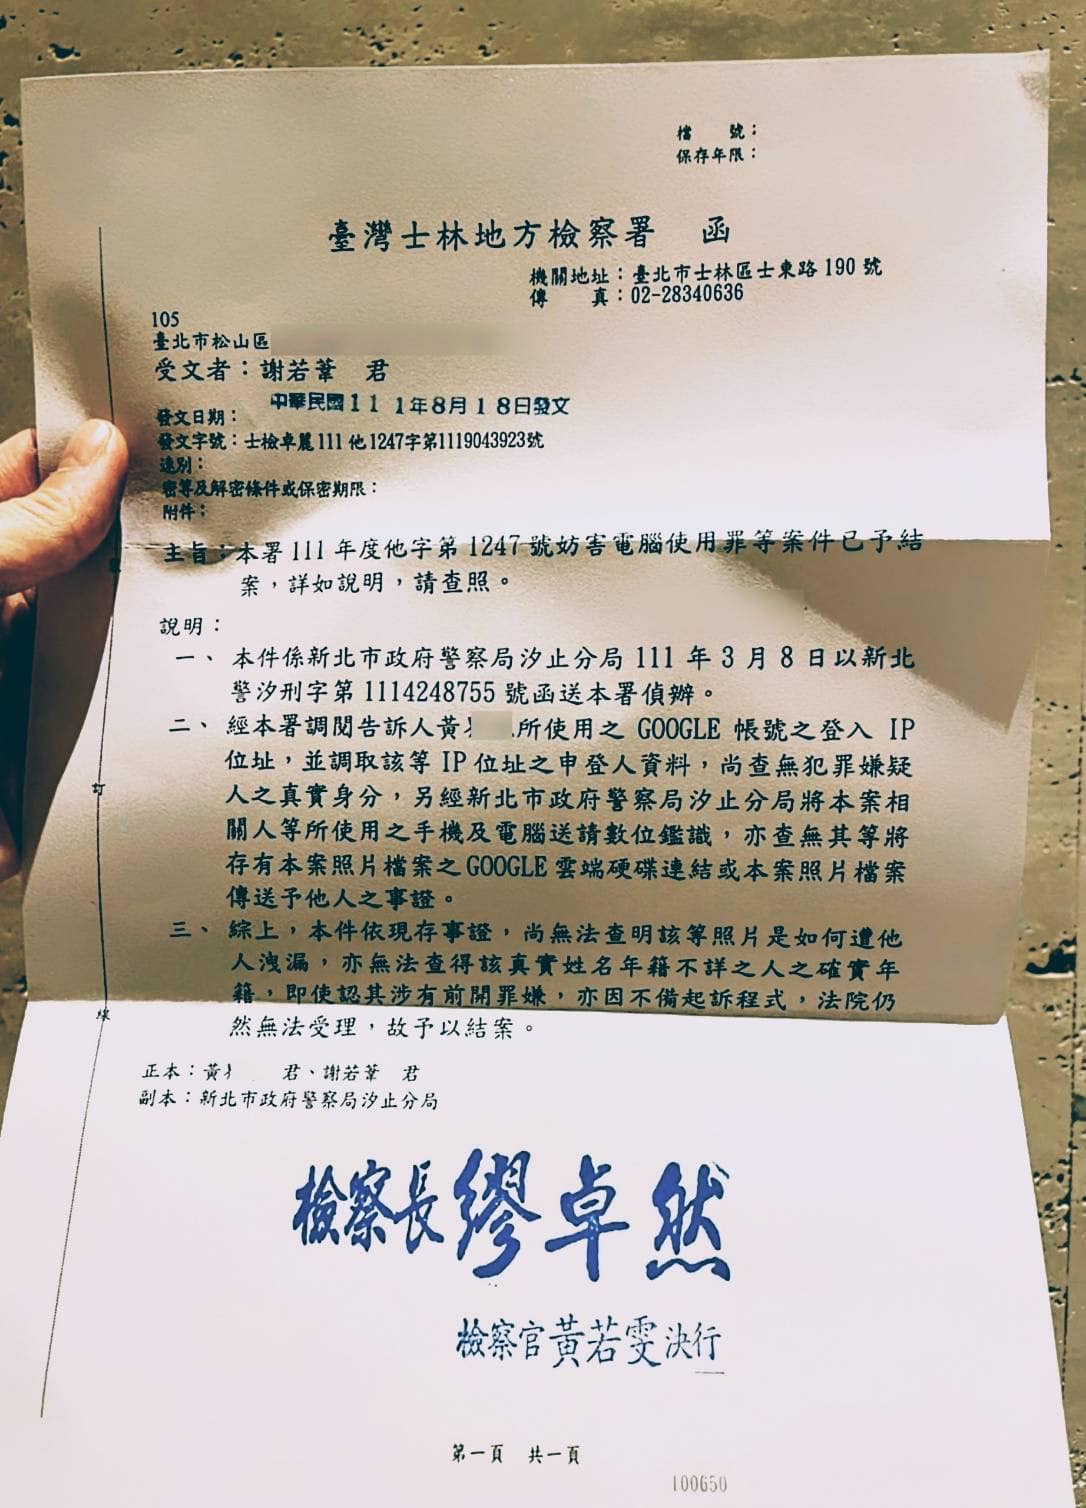 檔　　號：
保存年限：
臺灣士林地方檢察署　函
機關地址：臺北市士林區士東路190號
傳　　真：02-28340636
105
臺北市松山區
受文者：謝若葦　君
發文日期：中華民國111年8月18日發文
發文字號：士檢卓麗111他1247字第1119043923號
速別：
密等及解密條件或保密期限：
附件：
主旨：本署111年度他字第1247號妨害電腦使用罪等案件已予結
案，詳如說明，請查照。
說明：
一、本件係新北市政府警察局汐止分局111年3月8日以新北
警汐刑字第1114248755號函送本署偵辦。
二、經本署調閱告訴人黃 所使用之 GOOGLE 帳號之登入 IP
位址，並調取該等IP位址之申登人資料，尚查無犯罪嫌疑
人之真實身分，另經新北市政府警察局汐止分局將本案相
關人等所使用之手機及電腦送請數位鑑識，亦查無其等將
存有本案照片檔案之GOOGLE雲端硬碟連結或本案照片檔案
訂
傳送予他人之事證。
三、綜上，本件依現存事證，尚無法查明該等照片是如何遭他
人洩漏，亦無法查得該真實姓名年籍不詳之人之確實年
籍，即使認其涉有前開罪嫌，亦因不備起訴程式，法院仍
線
然無法受理，故予以結案。
正本：黃　　君、謝若葦　君
副本：新北市政府警察局汐止分局
檢察長繆卓然
檢察官黃若雯決行
第一頁　共一頁
100650